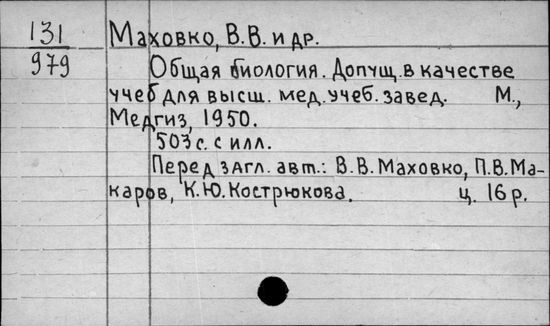 131
979
Маховко, В.В. и др.
Общая биология. Допущ. в качестве
учеб для высш. мед. учеб. завед. М.,
Медгиз, 1950.
503 с. с илл.
Перед загл. авт.: В.В. Маховко, П.В. Ма-
каров, К.Ю. Кострюкова. ц. 16 р.